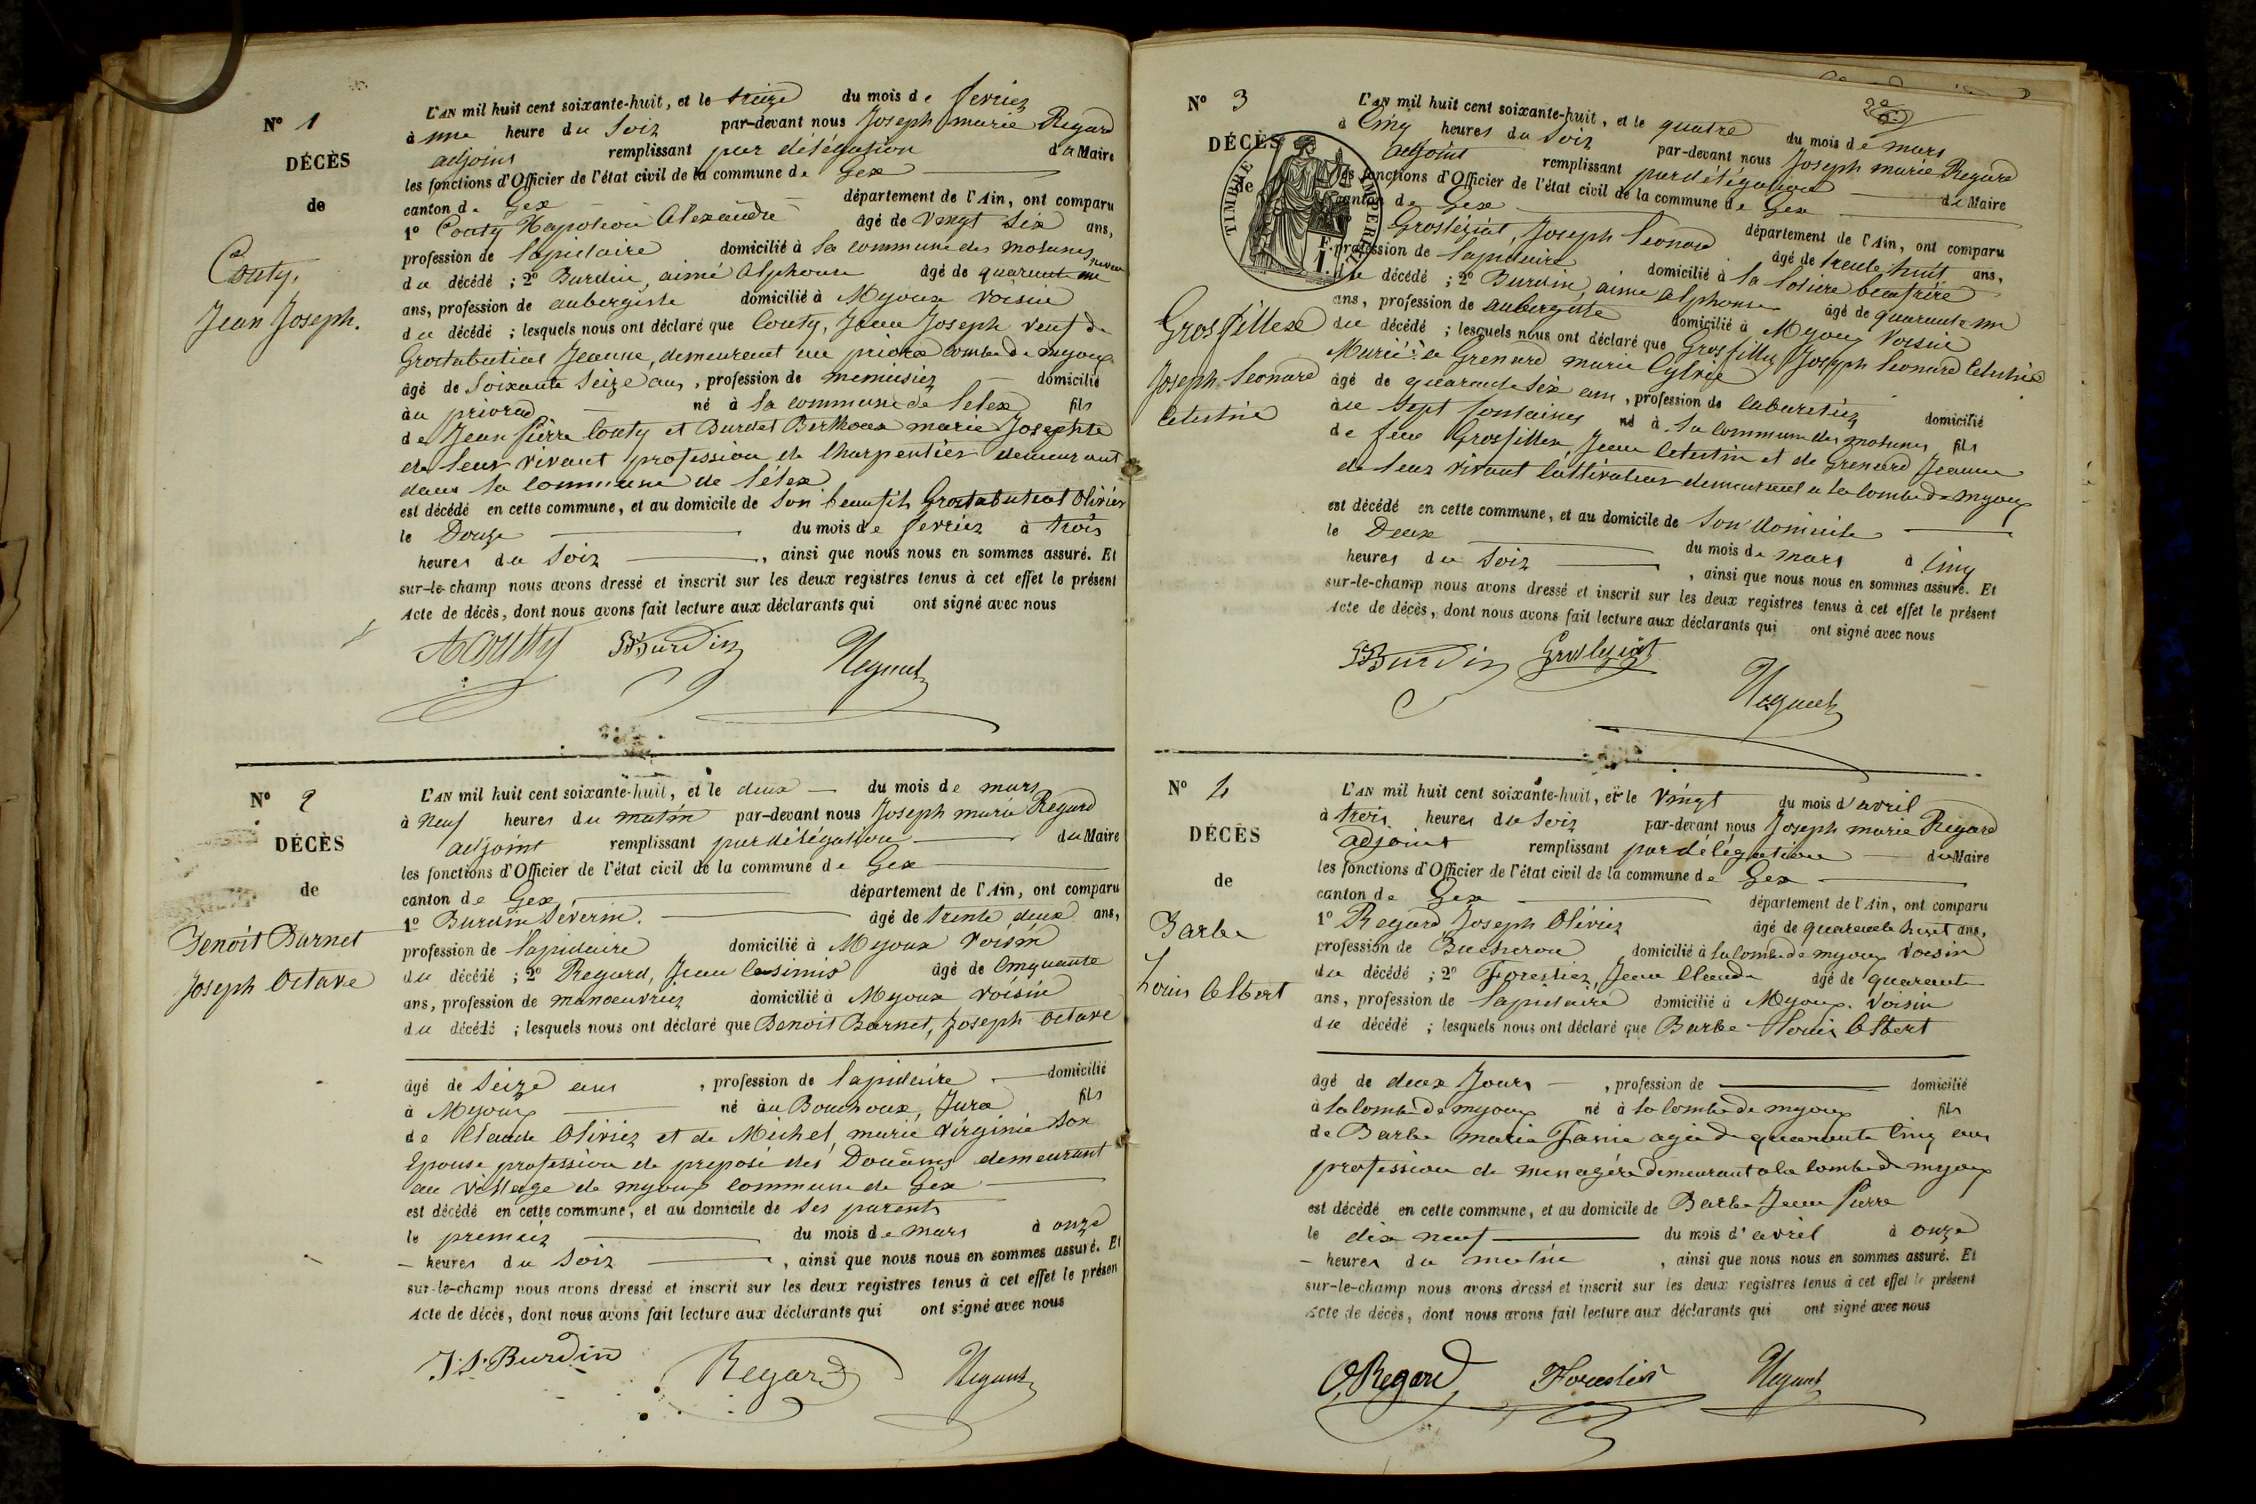 N° 1
DÉCÈS
de
Couty,
Jean Joseph.
L'AN mil huit cent soixante-huit, et le treize du mois de fevrier
à une heure du Soir par-devant nous Joseph marie Regard
adjoint remplissant par délégation du Maire
les fonctions d'Officier de l'état civil de la commune de Gex
canton de Gex département de l'Ain, ont comparu
1° Couty Napoléon Alexandre âgé de vingt six ans,
profession de lapidaire domicilié à la commune des molunes neveu
du décédé ; 2° Burdin, aimé Alphonse âgé de quarante un
ans, profession de aubergiste domicilié à Myoux voisin
du décédé ; lesquels nous ont déclaré que Couty, Jean Joseph veuf de
Jeanne, demeurant au combe de myoux
âgé de Soixante Seize ans, profession de menuisier domicilié
au né à la commune de lelex fils
de Jean Pierre Couty et Burdet Berthoux marie Josephte
de leur vivant profession de Charpentier demeurant
dans la commune de lélex
est décédé en cette commune, et au domicile de Son beaufils Olivier
le Douze du mois de fevrier à trois
heures du Soir, ainsi que nous nous en sommes assuré. Et
sur-le-champ nous avons dressé et inscrit sur les deux registres tenus à cet effet le présent
Acte de décès, dont nous avons fait lecture aux déclarants qui ont signé avec nous
A Coutty Burdin Regard
N° 2
DÉCÈS
de
Benoit Barnet
Joseph Octave
L'AN mil huit cent soixante-huit, et le deux du mois de mars
à neuf heures du matin par-devant nous Joseph marie Regard
adjoint remplissant par délégation du Maire
les fonctions d'Officier de l'état civil de la commune de Gex
canton de Gex département de l'Ain, ont comparu
1° Burdin Séverin. âgé de trente deux ans,
profession de lapidaire domicilié à Myoux voisin
du décédé ; 2° Regard, Jean âgé de Cinquante
ans, profession de manoeuvrier domicilié à Myoux voisin
du décédé ; lesquels nous ont déclaré que Benoit Barnet, Joseph Octave
âgé de Seize ans, profession de lapidaire domicilié
à Myoux né au Bouchoux, Jura fils
de Claude Olivier et de Michel, marie Virginie son
Epouse profession de préposé des Douanes demeurant
au village de myoux commune de Gex
est décédé en cette commune, et au domicile de Ses parents
le premier du mois de mars à onze
heures du Soir, ainsi que nous nous en sommes assuré. Et
sur-le-champ nous avons dressé et inscrit sur les deux registres tenus à cet effet le présen
Acte de décès, dont nous avons fait lecture aux déclarants qui ont signé avec nous
J. S. Burdin Regard Regard
N° 3
DÉCÈS
de
TIMBRE IMPERIAL
F. 1.
Grosfillex
Joseph Leonard
Celestin
L'AN mil huit cent soixante-huit, et le quatre du mois de mars
à Cinq heures du Soir par-devant nous Joseph marie Regard
adjoint remplissant par délégation du Maire
les fonctions d'Officier de l'état civil de la commune de Gex
canton de Gex département de l'Ain, ont comparu
Joseph Leonard âgé de trente huit ans,
profession de lapidaire domicilié à la beaufrère
du décédé ; 2° Burdin, aimé alphonse âgé de quarante un
ans, profession de aubergiste domicilié à Myoux Voisin
du décédé ; lesquels nous ont déclaré que Grosfillex Joseph Leonard Celestin
Marié à Grenard marie Sylvie
âgé de quarante Six ans, profession de cabaretier domicilié
au Sept fontaines né à la commune des molunes fils
de feu Grosfillex Jean Celestin et de Grenard Jeanne
de leur vivant Cultivateur demeurant a la combe de myoux
est décédé en cette commune, et au domicile de Son domicile
le Deux du mois de mars à Cinq
heures du Soir, ainsi que nous nous en sommes assuré. Et
sur-le-champ nous avons dressé et inscrit sur les deux registres tenus à cet effet le présent
Acte de décès, dont nous avons fait lecture aux déclarants qui ont signé avec nous
Burdin Regard
N° 4
DÉCÈS
de
Barbe
Louis Albert
L'AN mil huit cent soixante-huit, et le vingt du mois d'avril
à trois heures du Soir par-devant nous Joseph marie Regard
adjoint remplissant par délégation du Maire
les fonctions d'Officier de l'état civil de la commune de Gex
canton de Gex département de l'Ain, ont comparu
1° Regard Joseph Olivier âgé de quarante huit ans,
profession de Bucheron domicilié à la combe de myoux voisin
du décédé ; 2° Forestier, Jean Claude âgé de quarante
ans, profession de lapidaire domicilié à Myoux. Voisin
du décédé ; lesquels nous ont déclaré que Barbe Louis Albert
âgé de deux Jours, profession de domicilié
à la combe de myoux né à la combe de myoux fils
de Barbe marie agée de quarante Cinq ans
profession de menagère demeurant a la combe de myoux
est décédé en cette commune, et au domicile de Barbe Jean Pierre
le dix neuf du mois d'avril à onze
heures du matin, ainsi que nous nous en sommes assuré. Et
sur-le-champ nous avons dressé et inscrit sur les deux registres tenus à cet effet le présent
Acte de décès, dont nous avons fait lecture aux déclarants qui ont signé avec nous
O Regard Forestier Regard